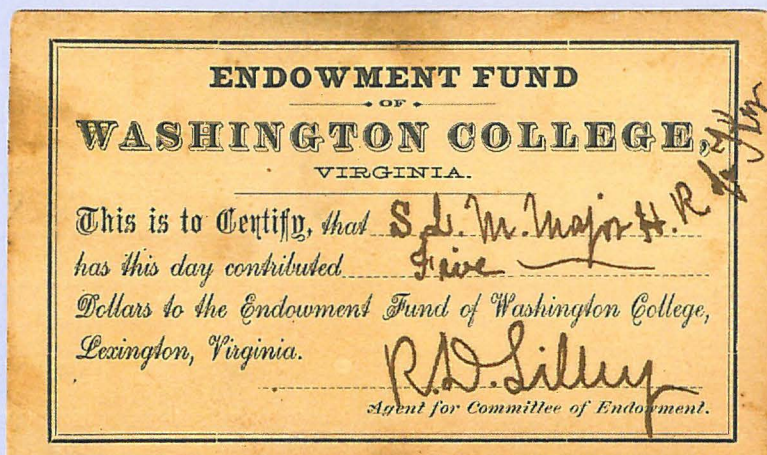 ENDOWMENT FUND
OF
WASHINGTON COLLEGE,
VIRGINIA.
This is to Certify, that S. L. M. Major H. R
has this day contributed Five
Dollars to the Endowment Fund of Washington College,
Lexington, Virginia.
R. D. Lilley
Agent for Committee of Endowment.